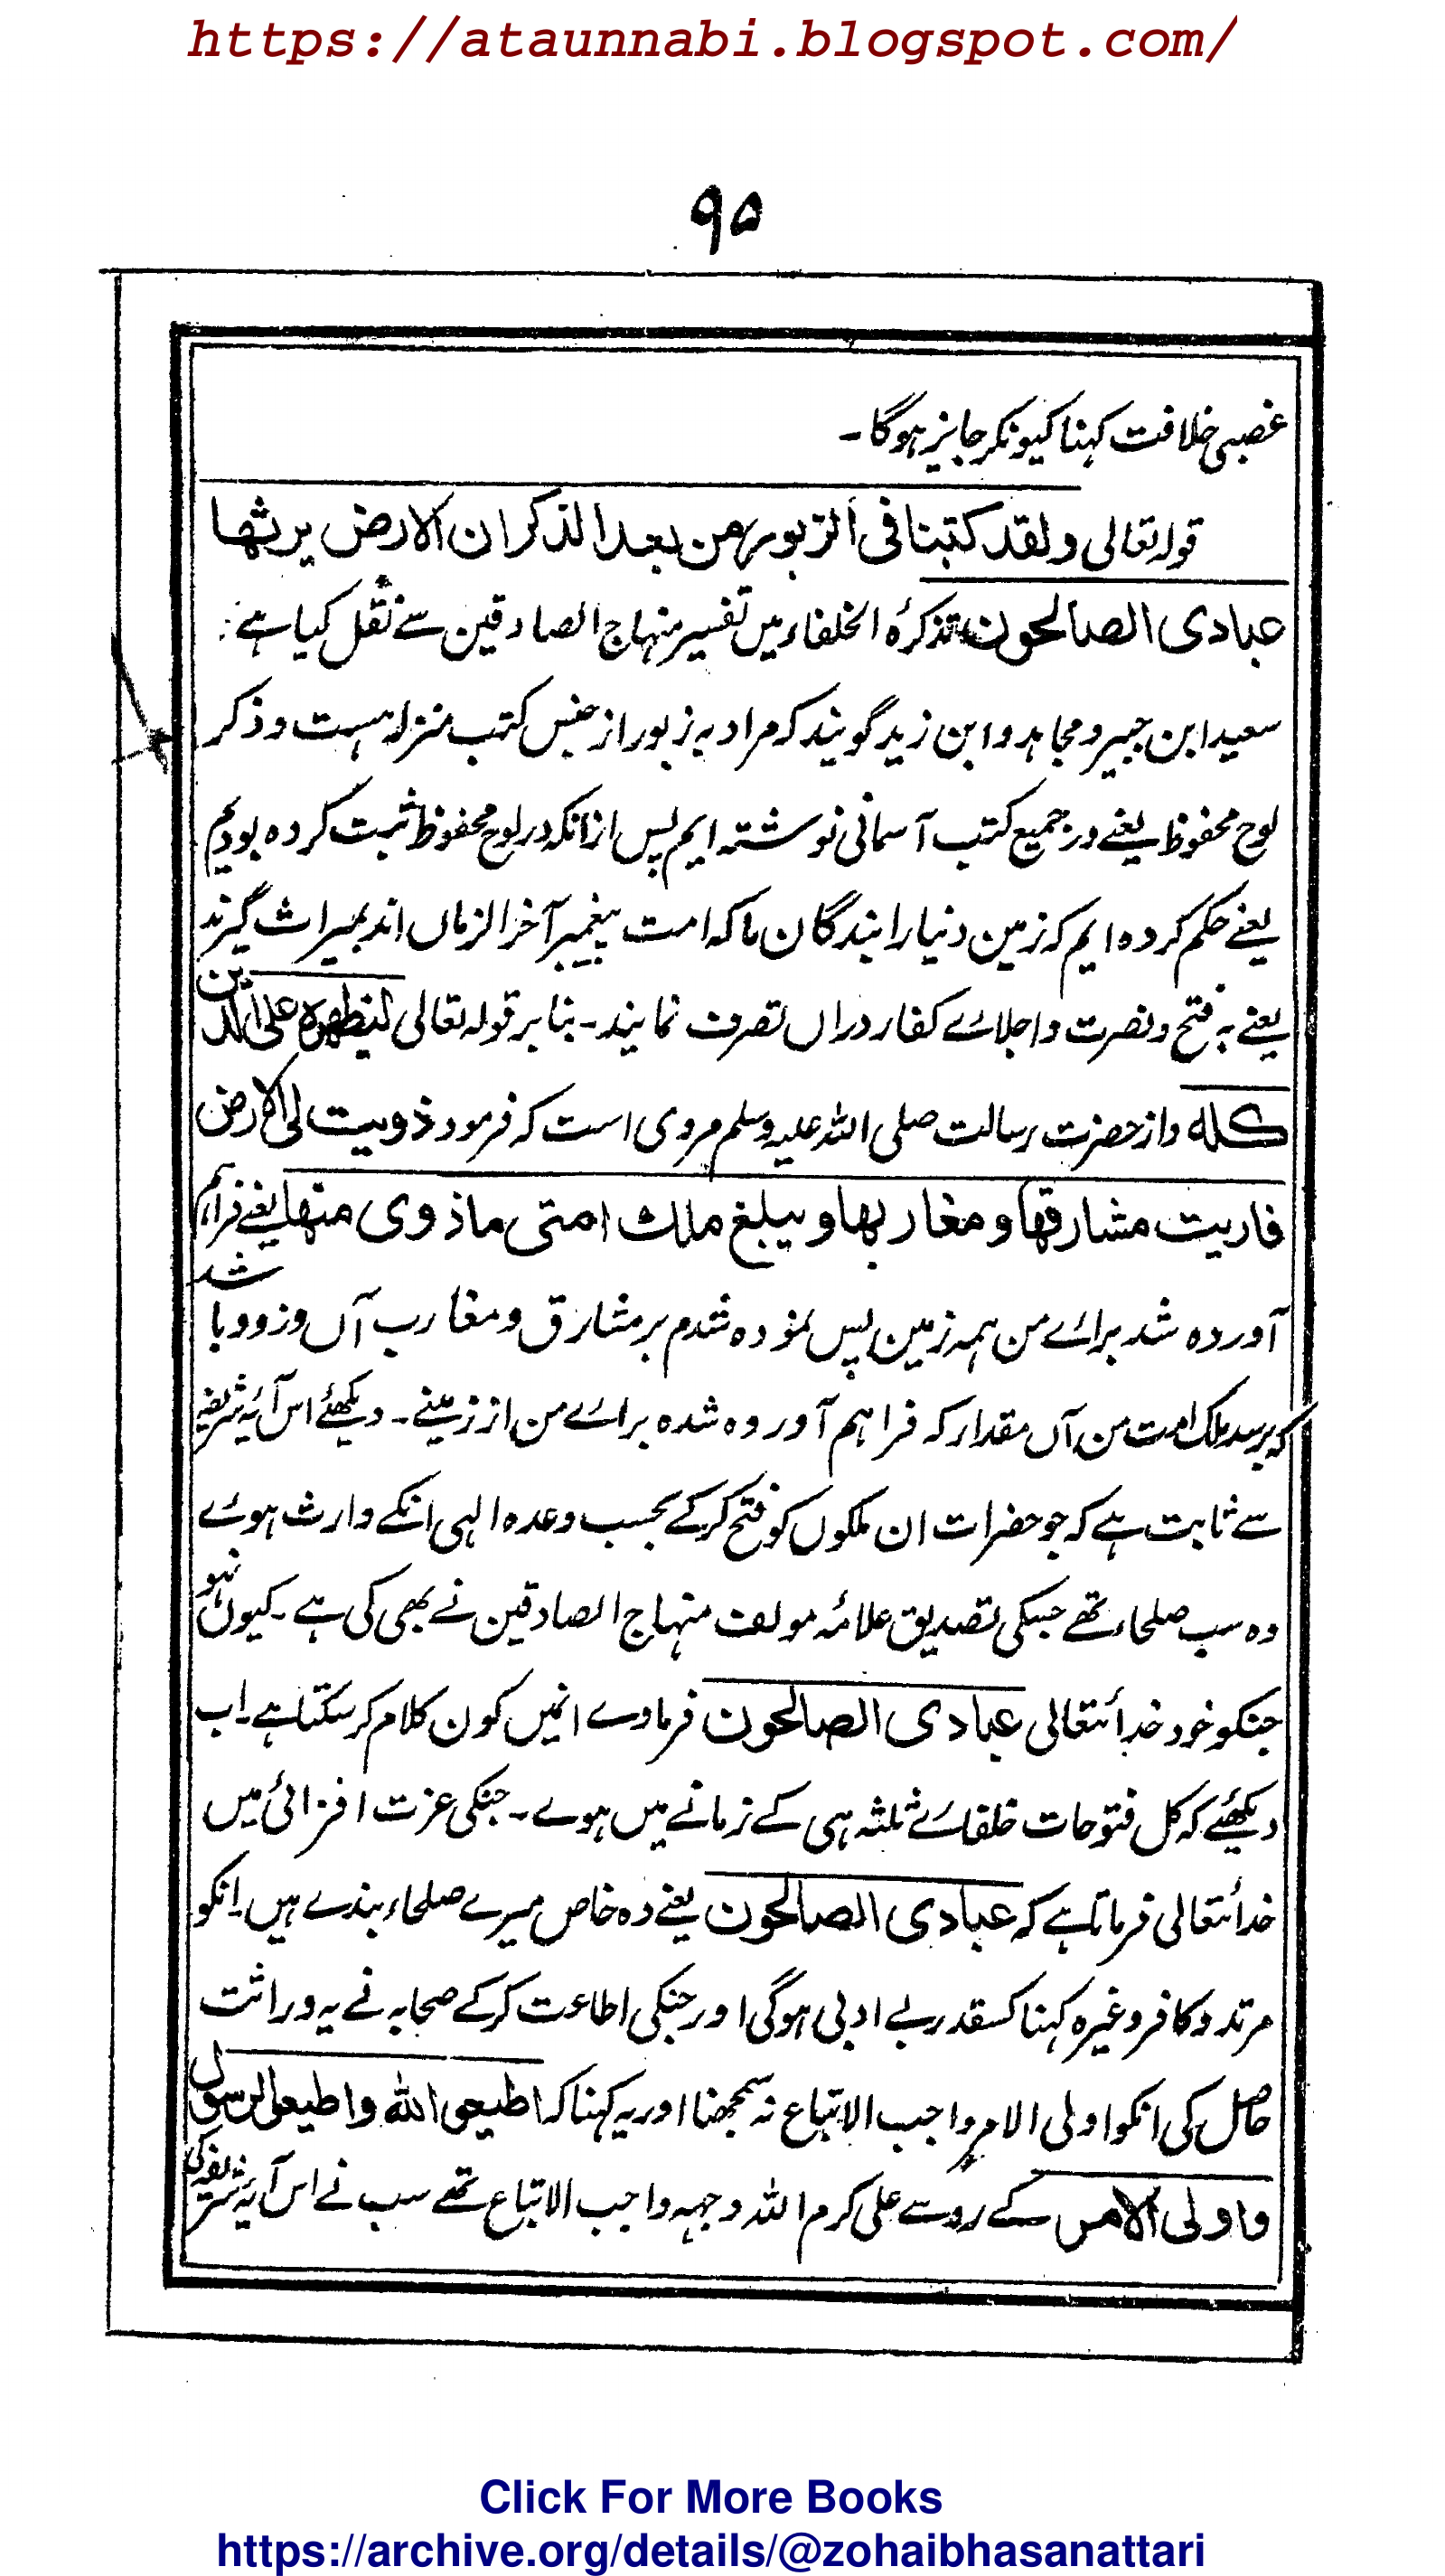 https://ataunnabi.blogspot.com/
۹۵
غصبی خلافت کہنا کیونکر جایز ہوگا۔
قولہ تعالی ولقد کتبنا فی الزبور من بعد الذکر ان الارض یرثھا
عبادی الصالحون تذکرۂ الخلفاء میں تفسیر منہاج الصادقین سے نقل کیا ہے:
سعید ابن جبیر و مجاہد و ابن زید گویند کہ مراد بہ زبور از جنس کتب منزلہ ہست و ذکر
لوح محفوظ یعنے در جمیع کتب آسمانی نوشتہ ایم پس ازانکہ در لوح محفوظ ثبت کردہ بودیم
یعنے حکم کردہ ایم کہ زمین دنیا را بندگان ما کہ امت پیغمبر آخر الزماں اند بمیراث گیرند
یعنے بہ فتح و نصرت و اجلاے کفار دراں تصرف نمایند۔ بنا بر قولہ تعالی لیظھرہ علی الدین
کلہ و از حضرت رسالت صلی اللہ علیہ وسلم مروی است کہ فرمود ذویت لی الارض
فاریت مشارقھا و مغاربھا و یبلغ ملک امتی ما ذوی منھا یعنے فراہم
آوردہ شد براے من ہمہ زمین پس نمودہ شدم بر مشارق و مغارب آں و زود باشد
کہ برسد ملک امت من آں مقدار کہ فراہم آوردہ شدہ براے من از زمینے۔ دیکھئے اس آیۂ شریفہ
سے ثابت ہے کہ جو حضرات ان ملکوں کو فتح کرکے بحسب وعدہ الہی انکے وارث ہوے
وہ سب صلحاء تھے جسکی تصدیق علامہ مولف منہاج الصادقین نے بھی کی ہے۔ کیوں نہو
جنکو خود خدائتعالی عبادی الصالحون فرماوے انمیں کون کلام کرسکتا ہے۔ اب
دیکھئے کہ کل فتوحات خلفاے ثلثہ ہی کے زمانے میں ہوے۔ جنکی عزت افزائی میں
خدائتعالی فرماتا ہے کہ عبادی الصالحون یعنے وہ خاص میرے صلحاء بندے ہیں۔ انکو
مرتد و کافر وغیرہ کہنا کسقدر بے ادبی ہوگی اور جنکی اطاعت کرکے صحابہ نے یہ وراثت
حاصل کی انکو اولی الامر واجب الاتباع نہ سمجھنا اور یہ کہنا کہ اطیعوا اللہ واطیعوا الرسول
واولی الامر کے رو سے علی کرم اللہ وجہہ واجب الاتباع تھے سب نے اس آیۂ شریفہ کی
Click For More Books
https://archive.org/details/@zohaibhasanattari